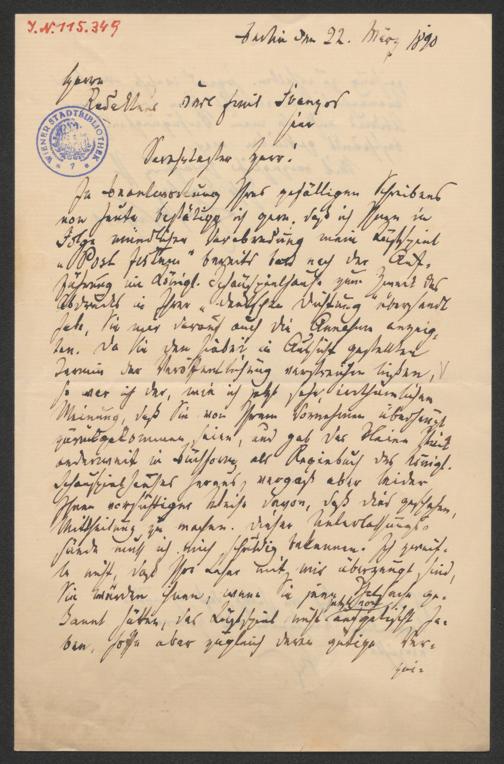 J.N. 115.349
Berlin den 22. März 1890
Herrn
Redakteur Karl Emil Franzos
hier
WIENER STADTBIBLIOTHEK
Verehrtester Herr!
In Beantwortung Ihres gefälligen Schreibens
von heute bestätige ich gern, daß ich Ihnen in
Folge mündlicher Verabredung mein Lustspiel
"Post festum" bereits bald nach der Auf-
führung im Königl. Schauspielhause zum Zweck des
Abdrucks in Ihrer "Deutschen Dichtung" übersandt
habe, Sie mir darauf auch die Annahme anzeig-
ten. Da Sie den dabei in Aussicht gestellten
Termin der Veröffentlichung verstreichen ließen,
so war ich der, wie ich jetzt sehe, irrthümlichen
Meinung, daß Sie von Ihrem Vornehmen überhaupt
zurückgekommen seien, und gab das kleine Stück
anderweit in Buchform als Regiebuch des Königl.
Schauspielhauses heraus, vergaß aber leider
Ihnen vorsichtiger Weise davon, daß dies geschehen,
Mittheilung zu machen. Dieser Unterlassungs-
sünde muß ich mich schuldig bekennen. Ich zweif-
le nicht, daß Ihre Leser mit mir überzeugt sind,
Sie würden ihnen, wenn Sie jene Thatsache ge-
kannt hätten, das Lustspiel nicht jetzt noch aufgetischt ha-
ben, hoffe aber zugleich deren gütige Ver-
zei-